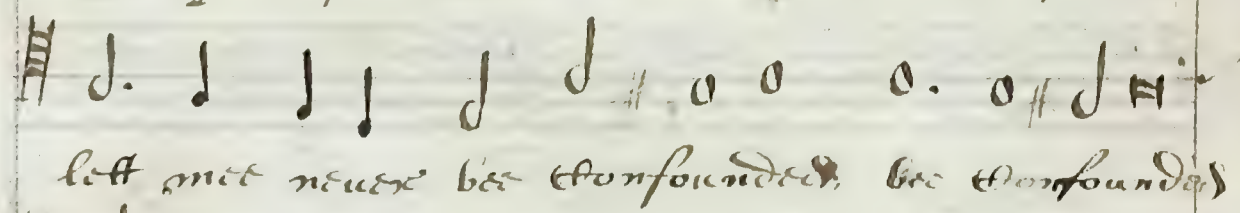 lett mee neuer bee Confounded, bee Confounded